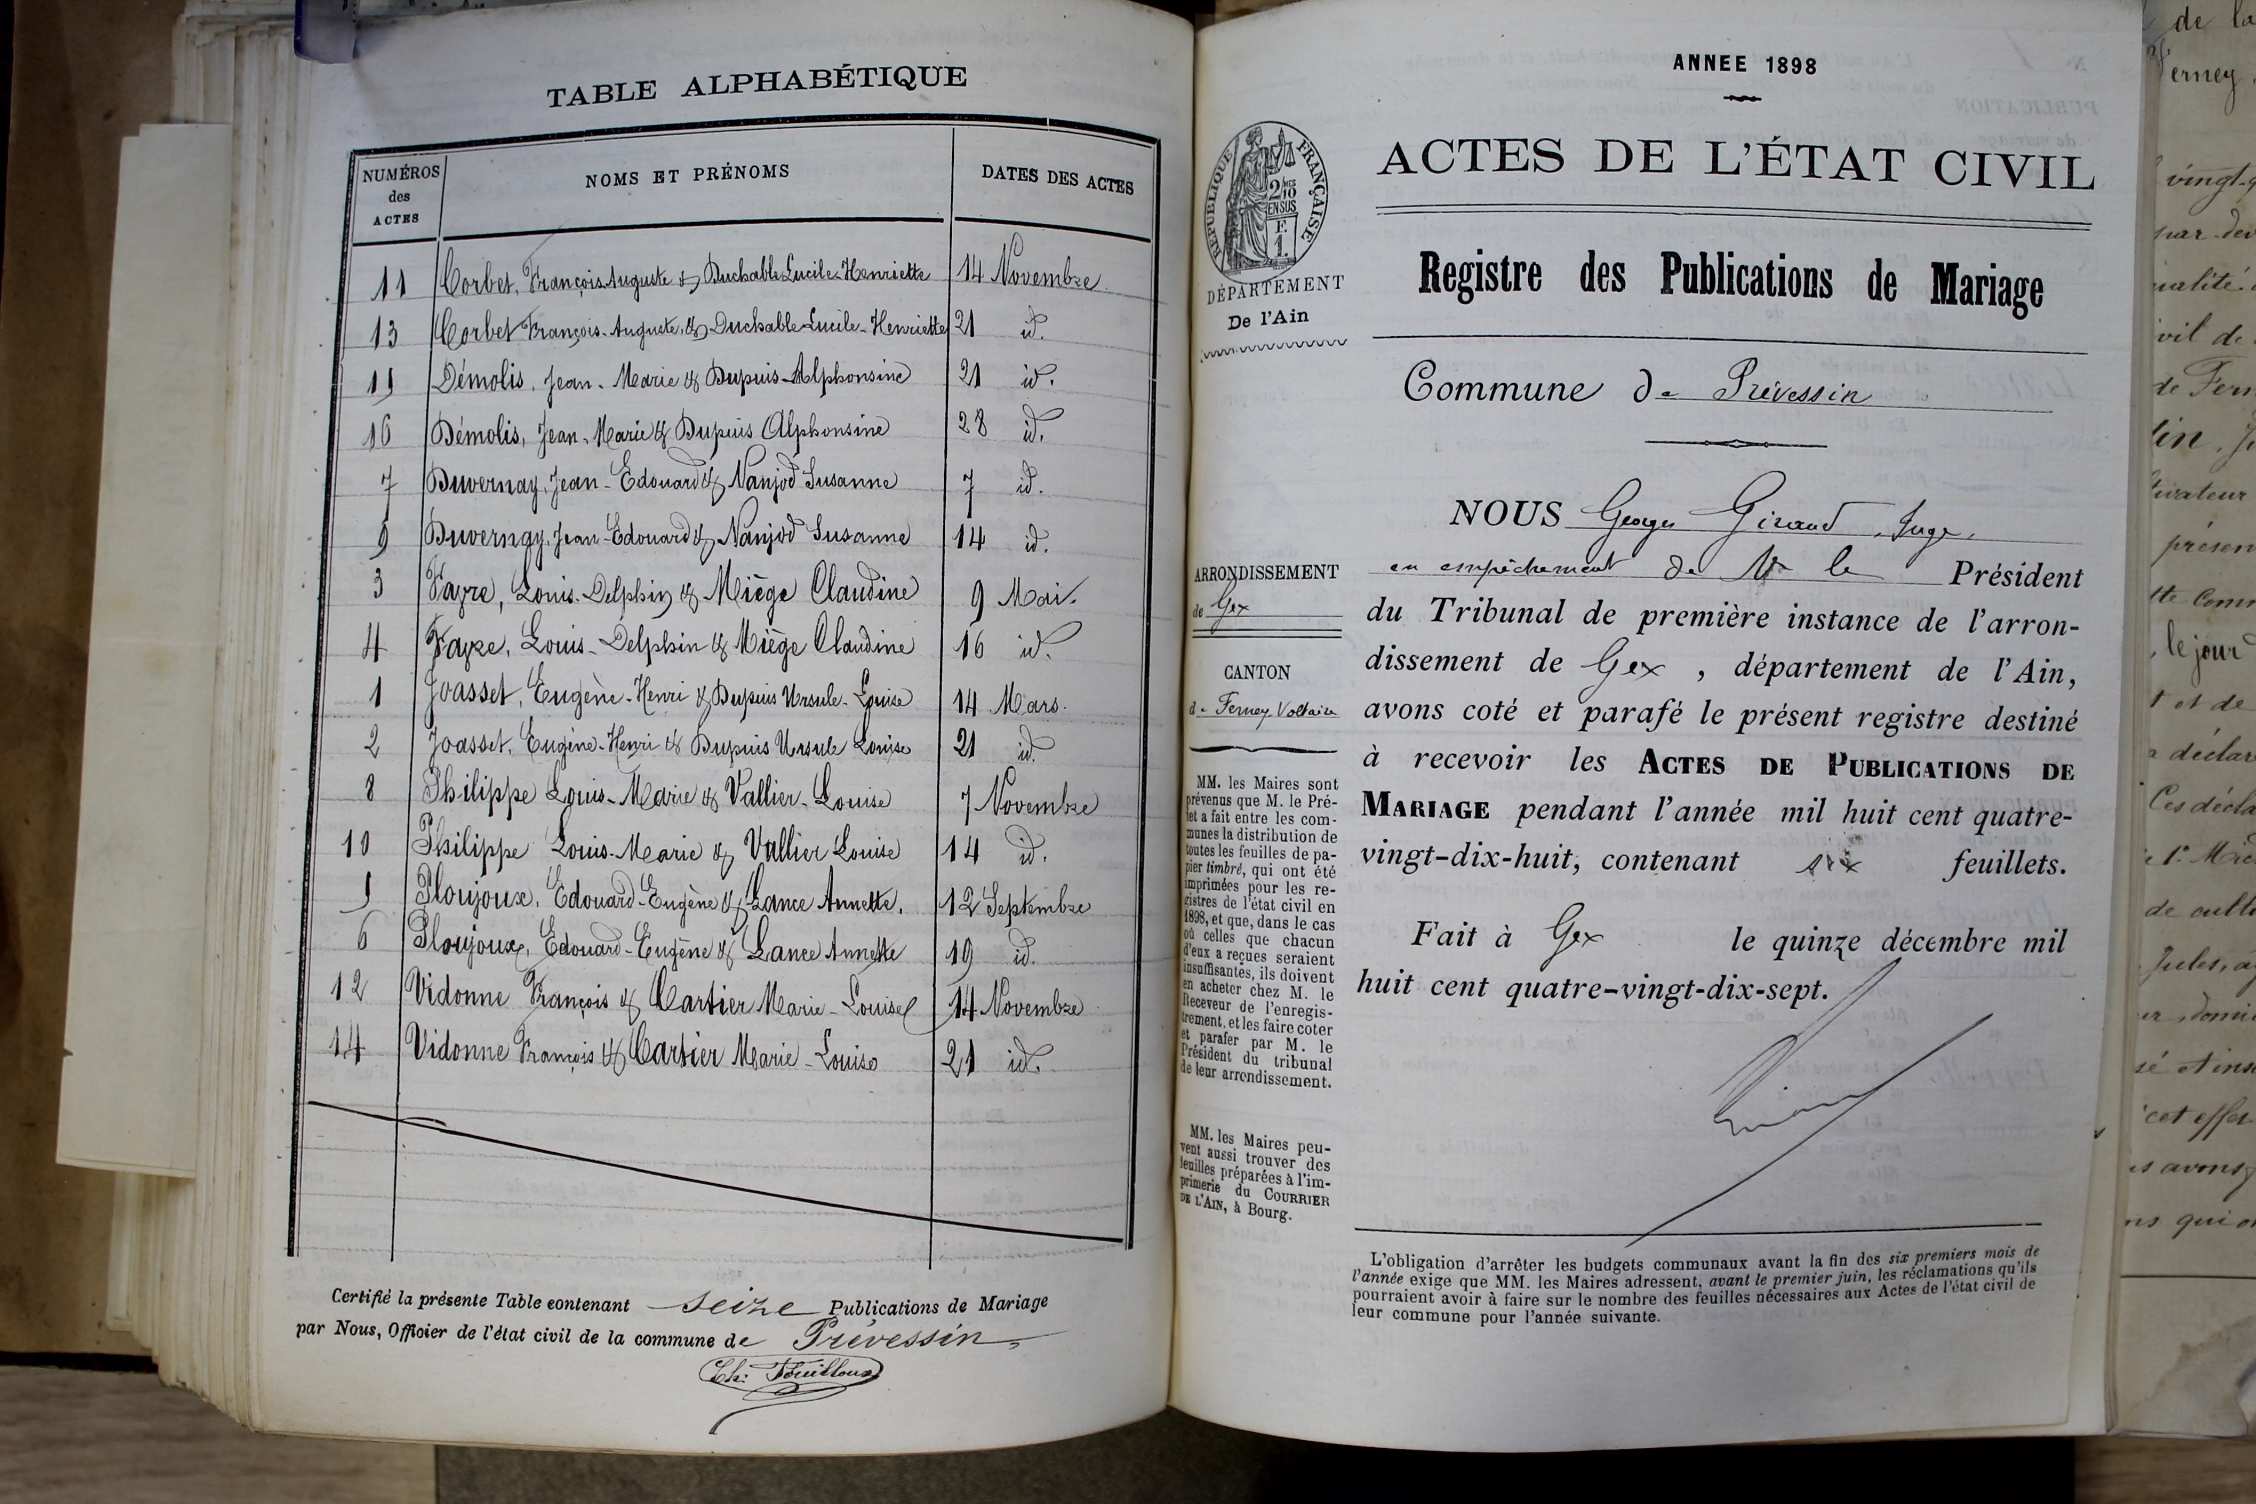 TABLE ALPHABÉTIQUE
NUMÉROS des ACTES
NOMS ET PRÉNOMS
DATES DES ACTES
11 Corbet, François Auguste & Duchable Lucile-Henriette 14 Novembre
13 Corbet François-Auguste, & Duchable Lucile-Henriette 21 id.
15 Démolis, Jean-Marie & Dupuis-Alphonsine 21 id.
16 Démolis, Jean-Marie & Dupuis Alphonsine 28 id.
7 Duvernay, Jean-Edouard & Nanjod Susanne 7 id.
9 Duvernay, Jean-Edouard & Nanjod Susanne 14 id.
3 Fayre, Louis-Delphin & Miège Claudine 9 Mai.
4 Fayre, Louis-Delphin & Miège Claudine 16 id.
1 Joasset, Eugène-Henri & Dupuis Ursule-Louise 14 Mars.
2 Joasset, Eugène-Henri & Dupuis Ursule Louise 21 id.
8 Philippe Louis-Marie & Vallier-Louise 7 Novembre
10 Philippe Louis-Marie & Vallier Louise 14 id.
5 Ploujoux, Edouard-Eugène & Lance Annette. 12 Septembre
6 Ploujoux, Edouard-Eugène & Lance Annette 19 id.
12 Vidonne François & Cartier Marie-Louise 14 Novembre
14 Vidonne François & Cartier Marie-Louise 21 id.
Certifié la présente Table contenant seize Publications de Mariage
par Nous, Officier de l'état civil de la commune de Prévessin
Ch: Fouilloux
ANNEE 1898
ACTES DE L'ÉTAT CIVIL
RÉPUBLIQUE FRANÇAISE
2/10 EN SUS
F. 1.
DÉPARTEMENT
De l'Ain
Registre des Publications de Mariage
Commune de Prévessin
ARRONDISSEMENT
de Gex
CANTON
de Ferney Voltaire
MM. les Maires sont
prévenus que M. le Pré-
fet a fait entre les com-
munes la distribution de
toutes les feuilles de pa-
pier timbré, qui ont été
imprimées pour les re-
gistres de l'état civil en
1898, et que, dans le cas
où celles que chacun
d'eux a reçues seraient
insuffisantes, ils doivent
en acheter chez M. le
Receveur de l'enregis-
trement, et les faire coter
et parafer par M. le
Président du tribunal
de leur arrondissement.
MM. les Maires peu-
vent aussi trouver des
feuilles préparées à l'im-
primerie du COURRIER
DE L'AIN, à Bourg.
NOUS Georges Giraud, Juge,
en empêchement de Mr le Président
du Tribunal de première instance de l'arron-
dissement de Gex, département de l'Ain,
avons coté et parafé le présent registre destiné
à recevoir les ACTES DE PUBLICATIONS DE
MARIAGE pendant l'année mil huit cent quatre-
vingt-dix-huit, contenant six feuillets.
Fait à Gex le quinze décembre mil
huit cent quatre-vingt-dix-sept.
L'obligation d'arrêter les budgets communaux avant la fin des six premiers mois de
l'année exige que MM. les Maires adressent, avant le premier juin, les réclamations qu'ils
pourraient avoir à faire sur le nombre des feuilles nécessaires aux Actes de l'état civil de
leur commune pour l'année suivante.
de la
erney
vingt-q
par-dev
vil de
de Fern
présen
le jour
t et de
de cult
Jules, a
cet effet
ns qui on